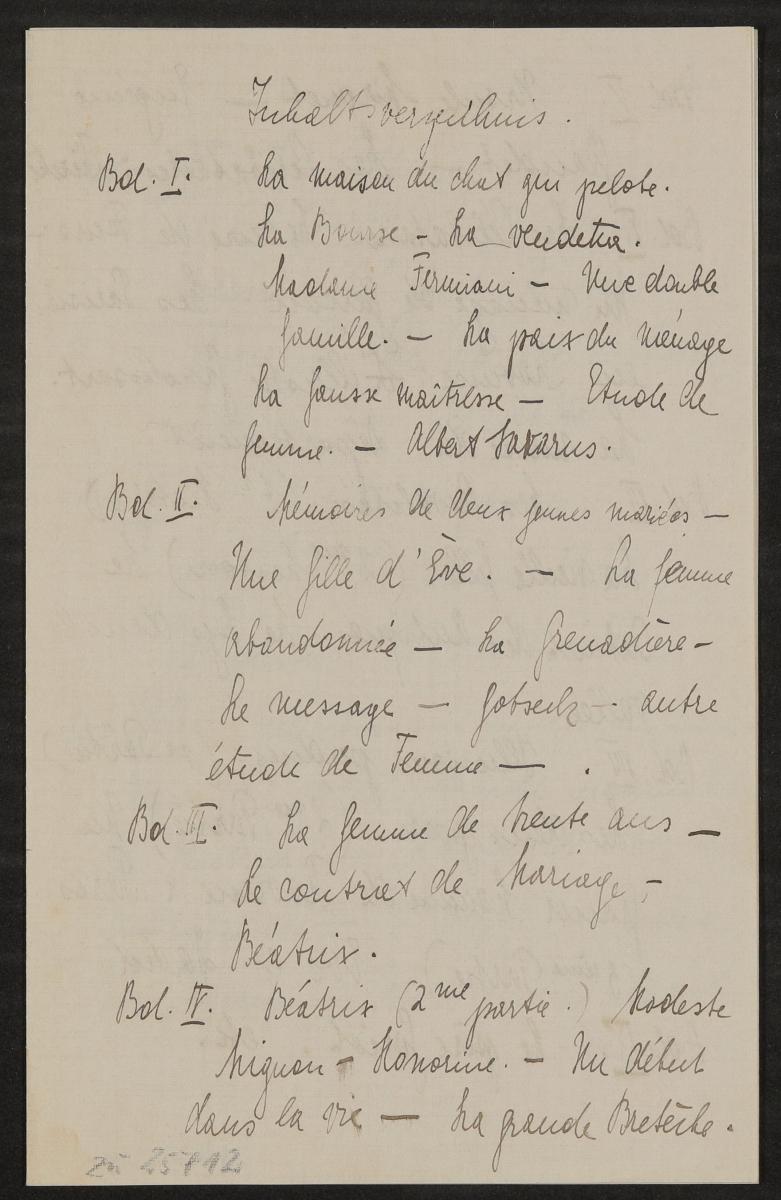 Inhaltsverzeichnis.
Bd. I. La maison du chat qui pelote.
La Bourse – La vendetta.
Madame Firmiani – Une double
famille. – La paix du ménage
La fausse maîtresse – Etude de
femme. – Albert Savarus.
Bd. II. Mémoires de deux jeunes mariées –
Une fille d'Ève. – La femme
abandonnée – La Grenadière –
Le message – Gobseck – autre
étude de Femme – .
Bd. III. La femme de trente ans –
Le contrat de Mariage, –
Béatrix.
Bd. IV. Béatrix (2me partie.) Modeste
Mignon – Honorine. – Un début
dans la vie – La grande Bretèche.
zu 25712